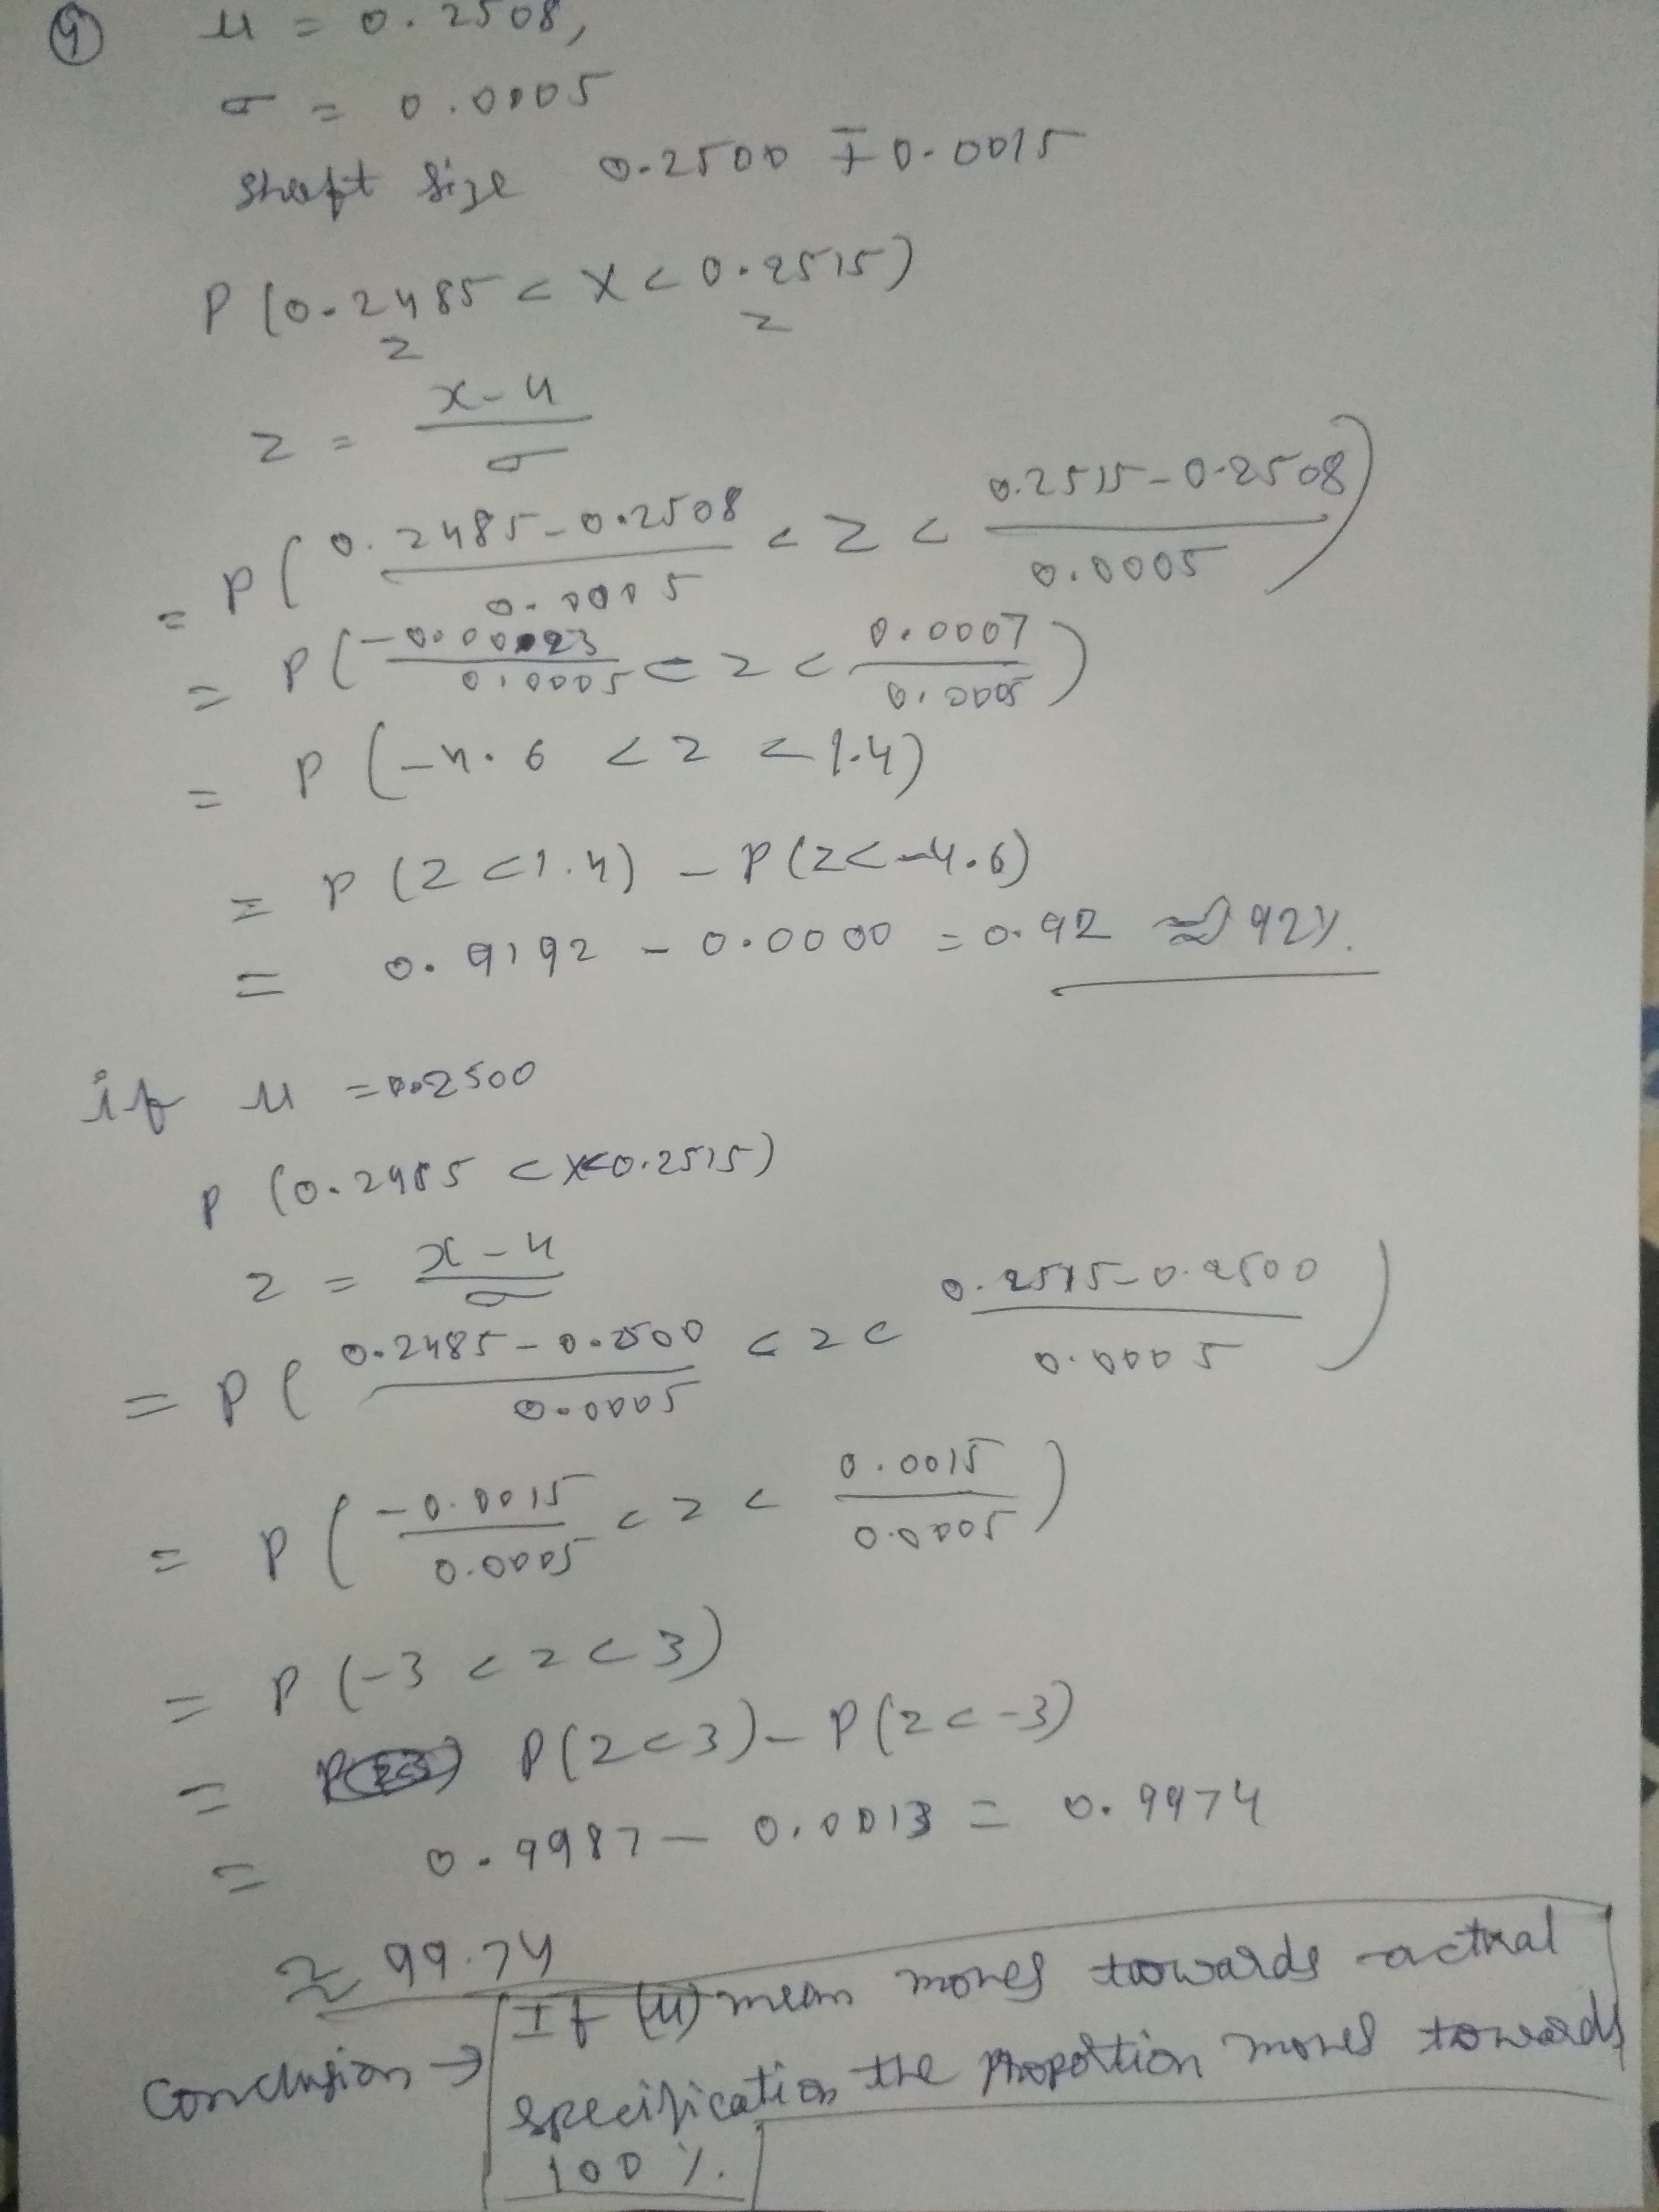 9) μ = 0.2508,
σ = 0.0005
shaft size 0.2500 ∓ 0.0015
P (0.2485 < X < 0.2515)
z z
z = x-μ / σ
= P ( 0.2485-0.2508 / 0.0005 < z < 0.2515-0.2508 / 0.0005 )
= P ( -0.0023 / 0.0005 < z < 0.0007 / 0.0005 )
= P (-4.6 < z < 1.4)
= P (z < 1.4) - P (z < -4.6)
= 0.9192 - 0.0000 = 0.92 ≈ 92%.
if μ = 0.2500
P (0.2485 < X < 0.2515)
z = x-μ / σ
= P ( 0.2485-0.2500 / 0.0005 < z < 0.2515-0.2500 / 0.0005 )
= P ( -0.0015 / 0.0005 < z < 0.0015 / 0.0005 )
= P (-3 < z < 3)
= P(z < 3) - P (z < -3)
= 0.9987 - 0.0013 = 0.9974
≈ 99.74
Conclusion → If (μ) mean moves towards actual
specification the proportion moves towards
100 %.